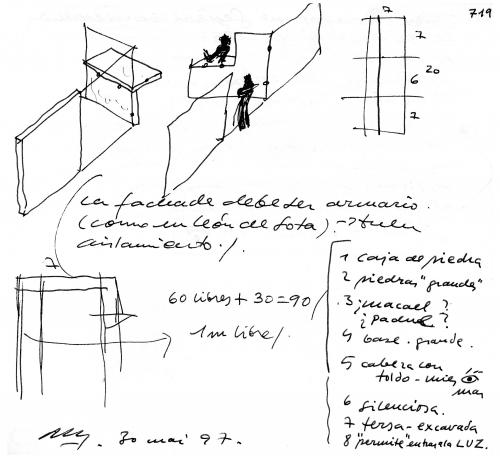 719
7
7
6 20
7
La fachada debe ser armario.
(como en León de Sota).→buen
aislamiento./.
7
60 libres + 30 = 90
1 m libre/.
1 caja de piedra
2 piedras "grandes"
3 ¿macael?
¿padul?
4 base. grande.
5 cabeza con
toldo -
mar
6 silenciosa.
7 tersa - excavada
8 "permite" entrar la LUZ.
30 mai 97.